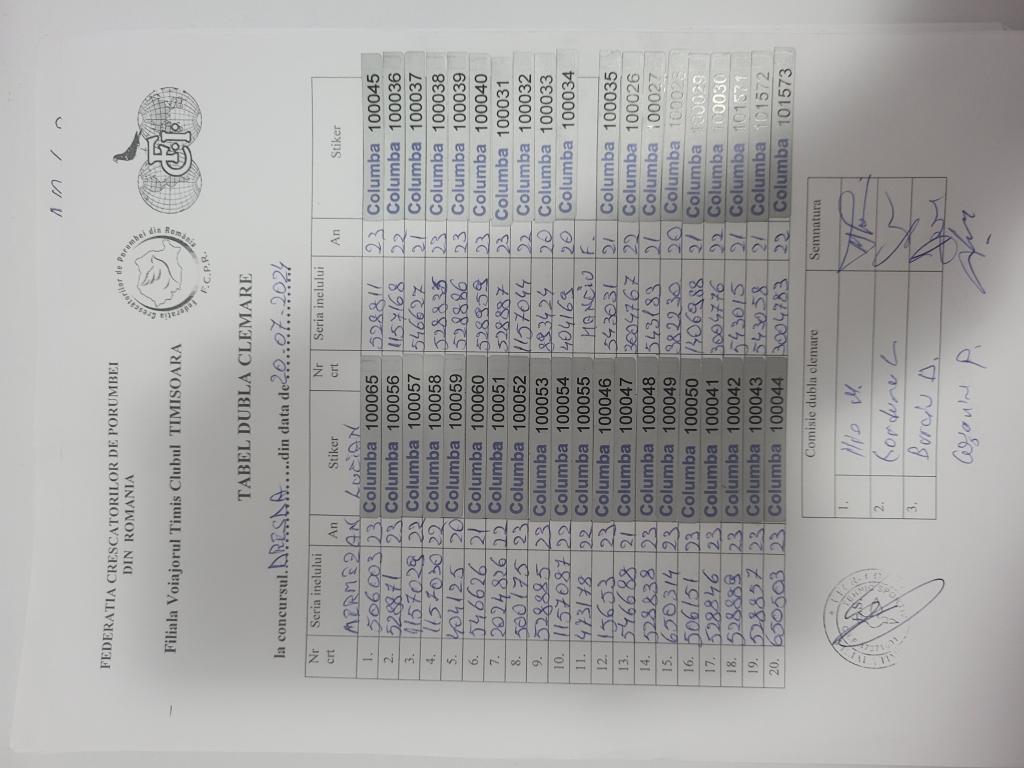 FEDERATIA CRESCATORILOR DE PORUMBEI
DIN ROMANIA
Filiala Voiajorul Timis Clubul TIMISOARA
Federatia Crescatorilor de Porumbei din România
F.C.P.R.
TABEL DUBLA CLEMARE
la concursul DRESDA din data de 20.07-2024
Nr crt Seria inelului An Stiker Nr crt Seria inelului An Stiker
LUCIAN
1. 506003 23 Columba 100065 528811 23 Columba 100045
2. 528871 23 Columba 100056 1157168 22 Columba 100036
3. 1157028 22 Columba 100057 546627 21 Columba 100037
4. 1157030 22 Columba 100058 528835 23 Columba 100038
5. 404125 20 Columba 100059 528886 23 Columba 100039
6. 546626 21 Columba 100060 528959 23 Columba 100040
7. 2024826 22 Columba 100051 528887 23 Columba 100031
8. 500175 23 Columba 100052 1157044 22 Columba 100032
9. 528885 23 Columba 100053 883424 20 Columba 100033
10. 1157087 22 Columba 100054 404169 20 Columba 100034
11. 423178 22 Columba 100055 HANCIU F.
12. 15653 23 Columba 100046 543031 21 Columba 100035
13. 546688 21 Columba 100047 3004767 22 Columba 100026
14. 528838 23 Columba 100048 543183 21 Columba 100027
15. 650314 23 Columba 100049 982230 20 Columba 100028
16. 506151 23 Columba 100050 1406988 21 Columba 100029
17. 528846 23 Columba 100041 3004776 22 Columba 100030
18. 528889 23 Columba 100042 543015 21 Columba 101571
19. 528897 23 Columba 100043 543058 21 Columba 101572
20. 650303 23 Columba 100044 3004783 22 Columba 101573
Comisie dubla clemare Semnatura
1.
2.
3.
P.